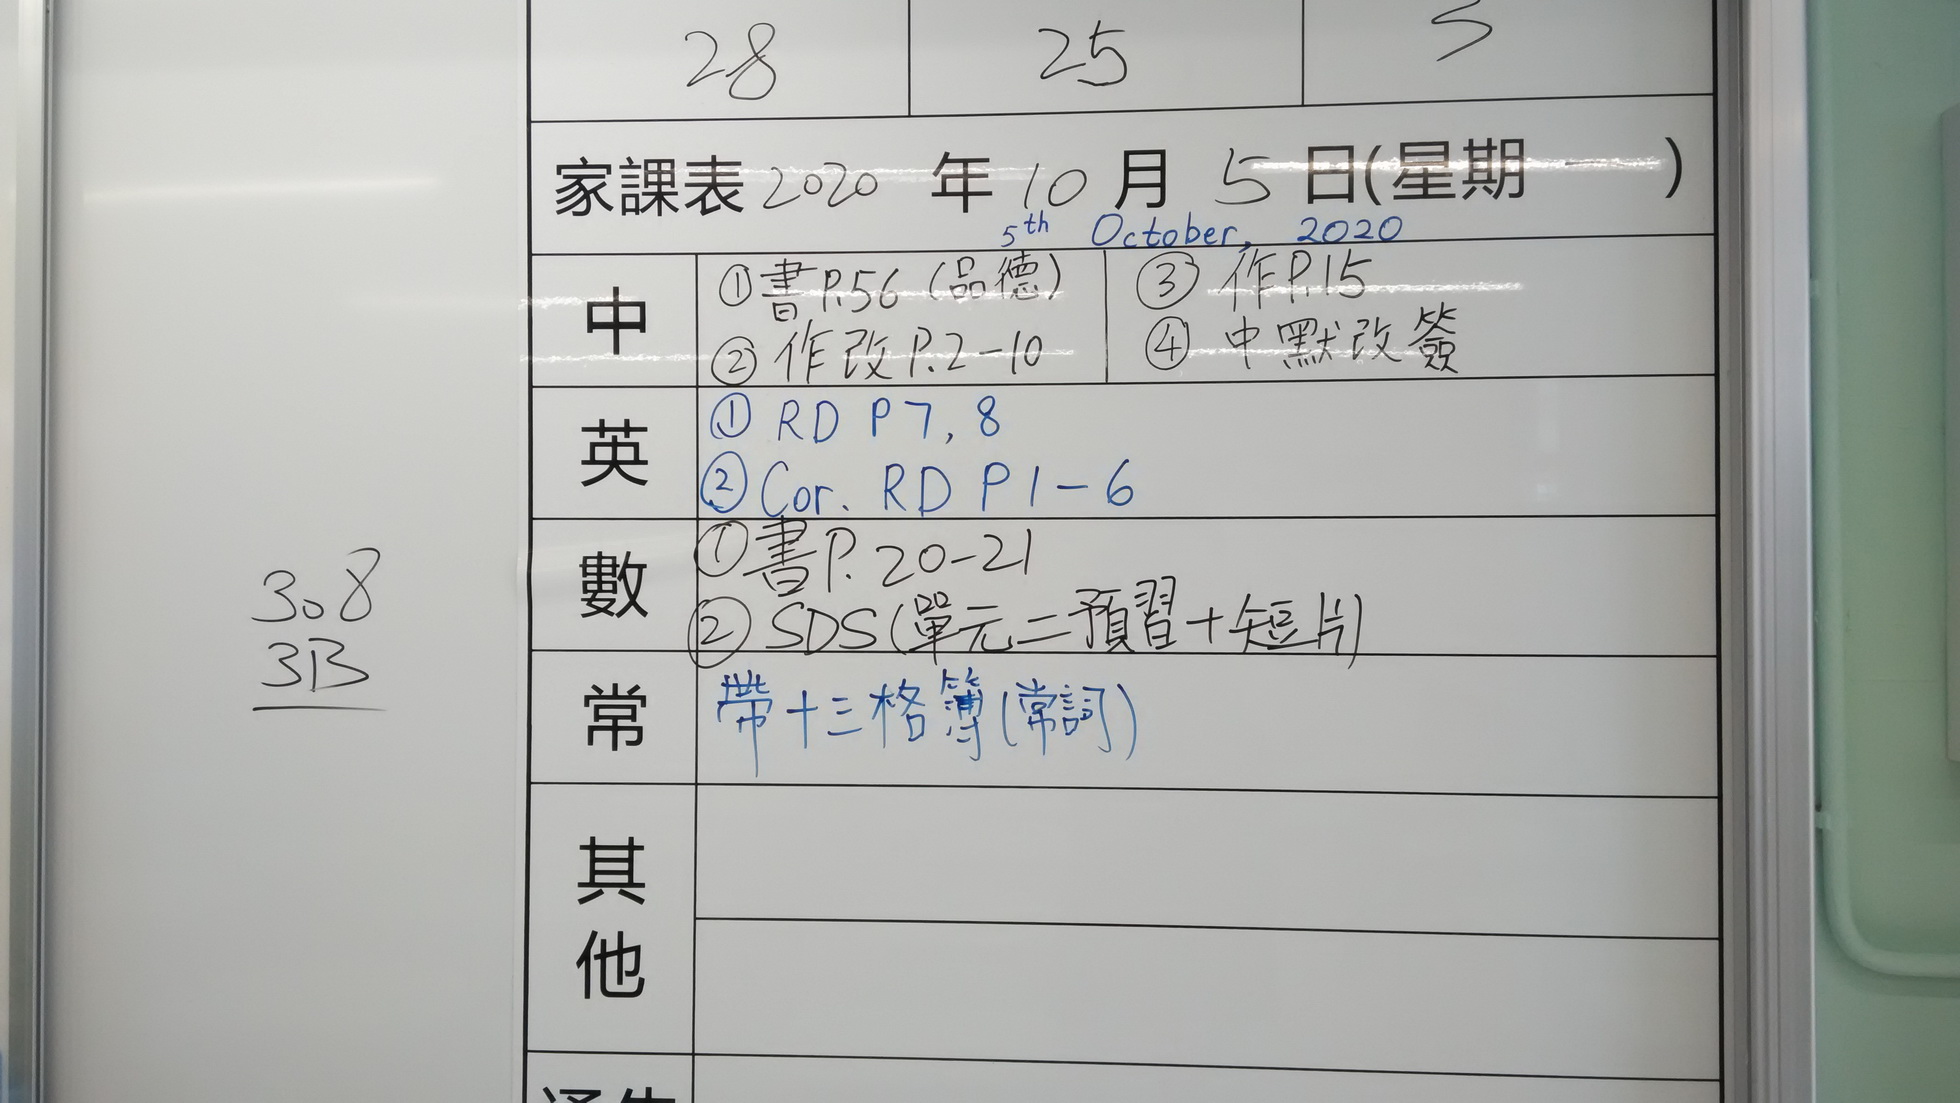 28 25 5
家課表 2020 年 10 月 5 日(星期一)
5th October, 2020
中
①書P.56(品德)
②作改P.2-10
③作P.15
④中默改簽
英
① RD P7, 8
② Cor. RD P1-6
數
①書P.20-21
②SDS(單元二預習+短片)
常
帶十三格簿(常詞)
308
3B
其他
通告